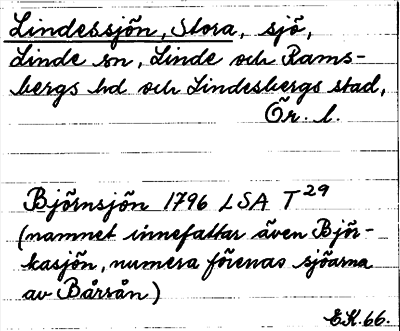 Lindessjön, Stora, sjö,
Linde sn, Linde och Rams-
bergs hd och Lindesbergs stad,
Ör. l.
Björnsjön 1796 LSA T 29
(namnet innefattar även Björ-
kasjön, numera förenas sjöarna
av Bårsån)
E.K. 66.